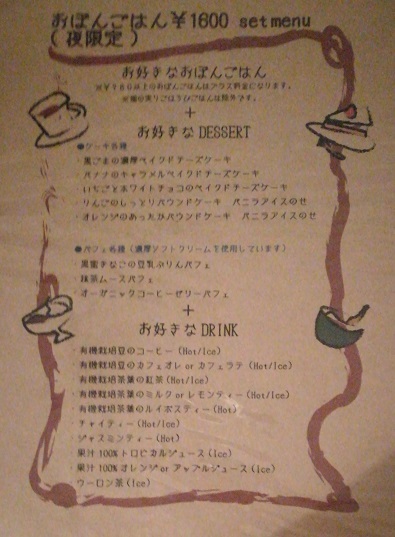 おぼんごはん￥1600 set menu
(夜限定)
お好きなおぼんごはん
＋
お好きなDESSERT
●ケーキ各種
・黒ごまの濃厚ベイクドチーズケーキ
・バナナのキャラメルベイクドチーズケーキ
・いちごとホワイトチョコのベイクドチーズケーキ
・りんごのしっとりパウンドケーキ　バニラアイスのせ
・オレンジのあったかパウンドケーキ　バニラアイスのせ
●パフェ各種（濃厚ソフトクリームを使用しています）
・黒蜜きなこの豆乳ぷりんパフェ
・抹茶ムースパフェ
・オーガニックコーヒーゼリーパフェ
＋
お好きなDRINK
・有機栽培豆のコーヒー (Hot/Ice)
・有機栽培豆のカフェオレ or カフェラテ (Hot/Ice)
・有機栽培茶葉の紅茶 (Hot/Ice)
・有機栽培茶葉のミルク or レモンティー (Hot/Ice)
・有機栽培茶葉のルイボスティー (Hot)
・チャイティー (Hot/Ice)
・ジャスミンティー (Hot)
・果汁100%トロピカルジュース (Ice)
・果汁100%オレンジ or アップルジュース (Ice)
・ウーロン茶 (Ice)